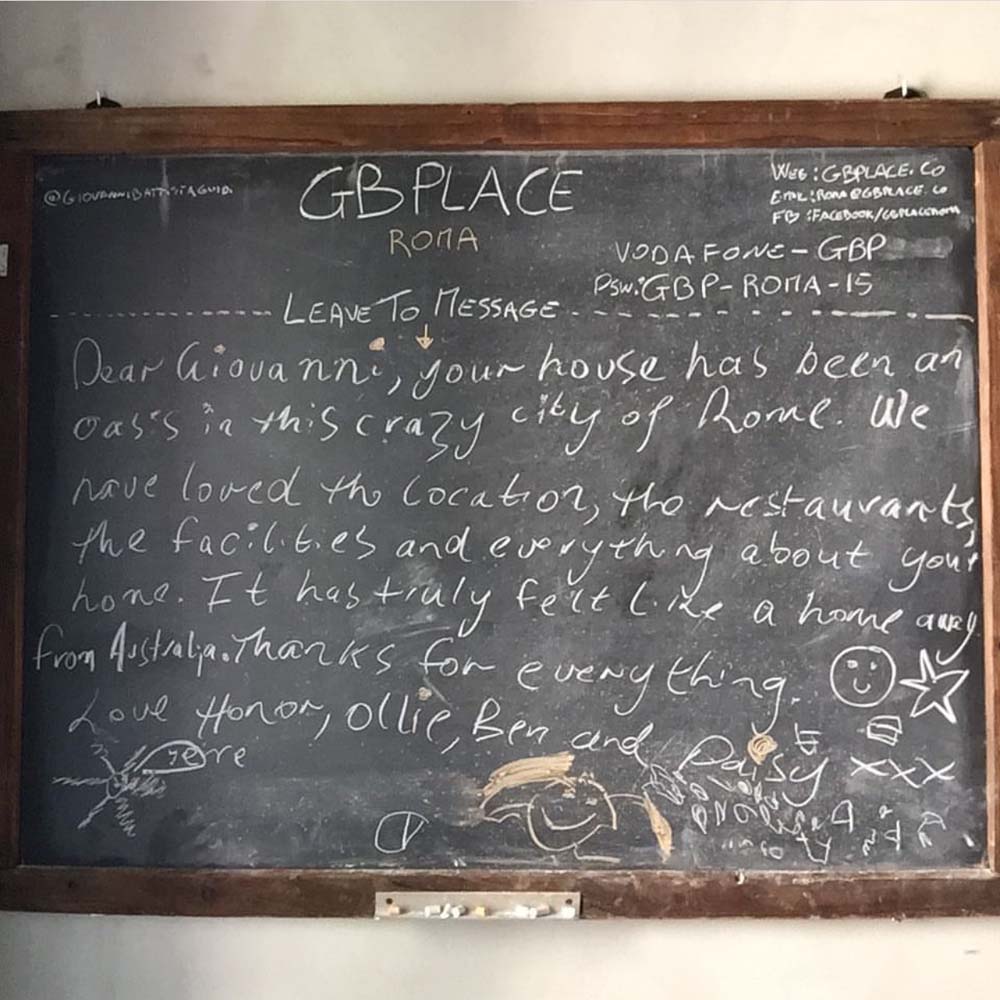 @GIOVANNIBATTISTAGUIDI
GBPLACE
ROMA
WEB: GBPLACE.CO
EMAIL: ROMA@GBPLACE.CO
FB: FACEBOOK/GBPLACEROMA
VODAFONE-GBP
PSW: GBP-ROMA-15
LEAVE TO MESSAGE
Dear Giovanni, your house has been an
oasis in this crazy city of Rome. We
have loved the location, the restaurants,
the facilities and everything about your
home. It has truly felt like a home away
from Australia. Thanks for everything.
Love Honor, Ollie, Ben and Daisy xxx